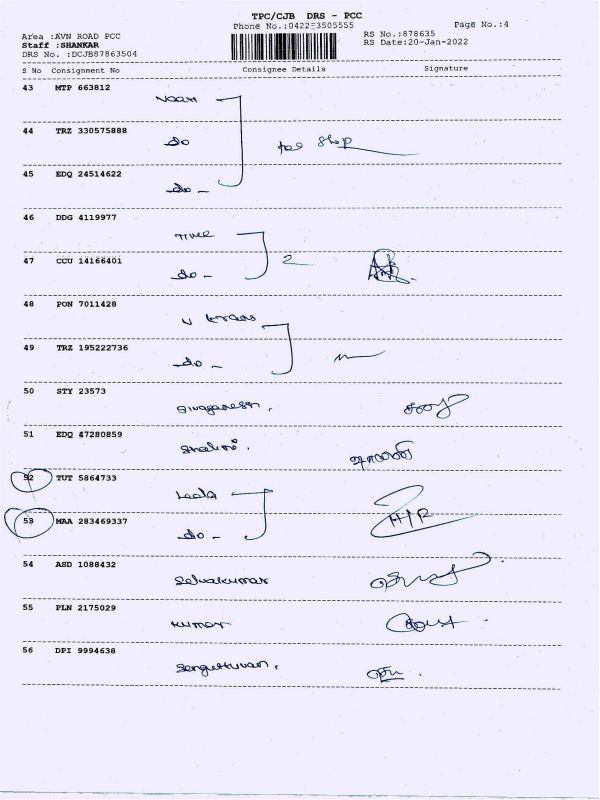 TPC/CJB DRS - PCC
Phone No.:0422-3505555 Page No.:4
Area :AVN ROAD PCC RS No.:878635
Staff :SHANKAR RS Date:20-Jan-2022
DRS No. :DCJB87863504
S No Consignment No Consignee Details Signature
43 MTP 663812
44 TRZ 330575888
do
45 EDQ 24514622
do -
46 DDG 4119977
47 CCU 14166401
do - 2
48 PON 7011428
49 TRZ 195222736
do -
50 STY 23573
Sivaganesh.
51 EDQ 47280859
52 TUT 5864733
Leela
53 MAA 283469337
do -
54 ASD 1088432
Selvakumar
55 PLN 2175029
Kumar
56 DPI 9994638
Senguttuvan.